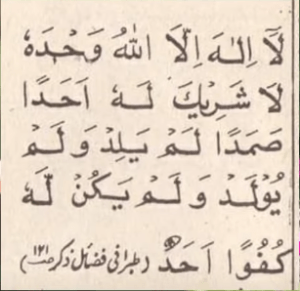 لَآ اِلٰهَ اِلَّا اللّٰهُ وَحْدَهٗ
لَا شَرِيْكَ لَهٗ اَحَدًا
صَمَدًا لَمْ يَلِدْ وَلَمْ
يُوْلَدْ وَلَمْ يَكُنْ لَّهٗ
كُفُوًا اَحَدٌ (طبرانی فضائل ذکر ص۱۲۱)